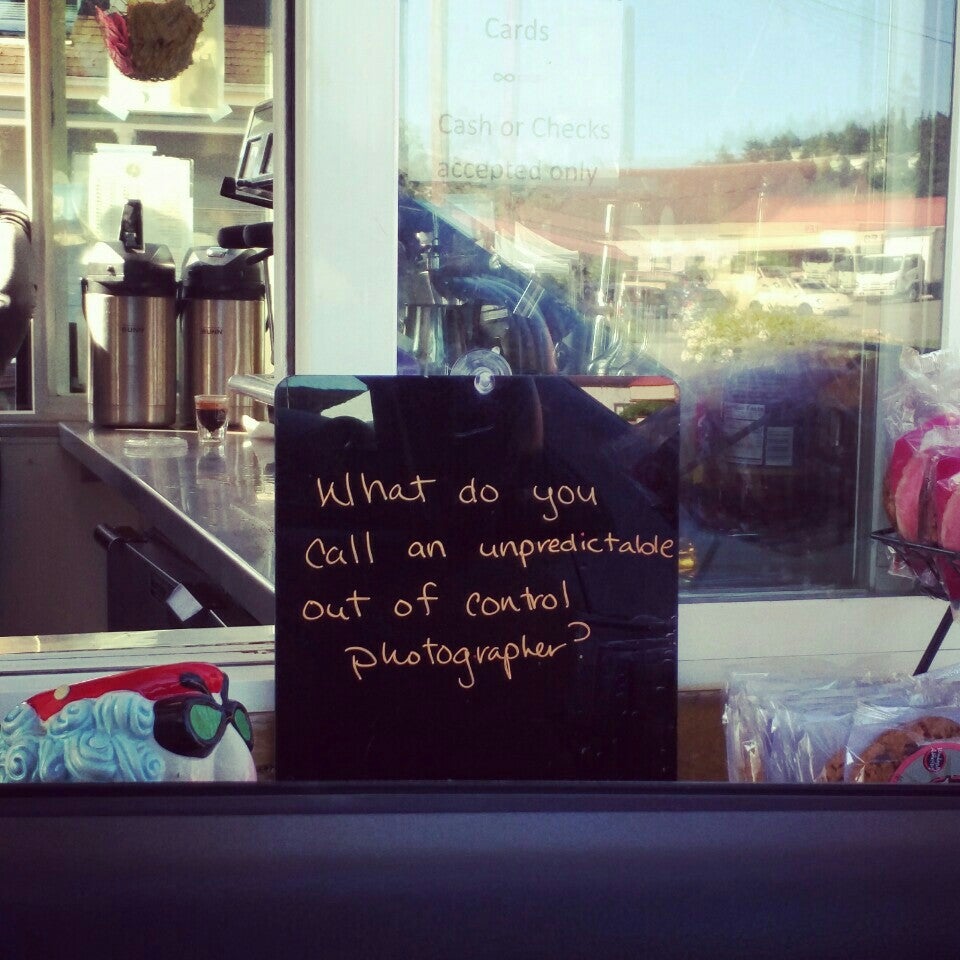 Cards
∞
Cash or Checks
accepted only
BUNN
BUNN
What do you
call an unpredictable
out of control
photographer?